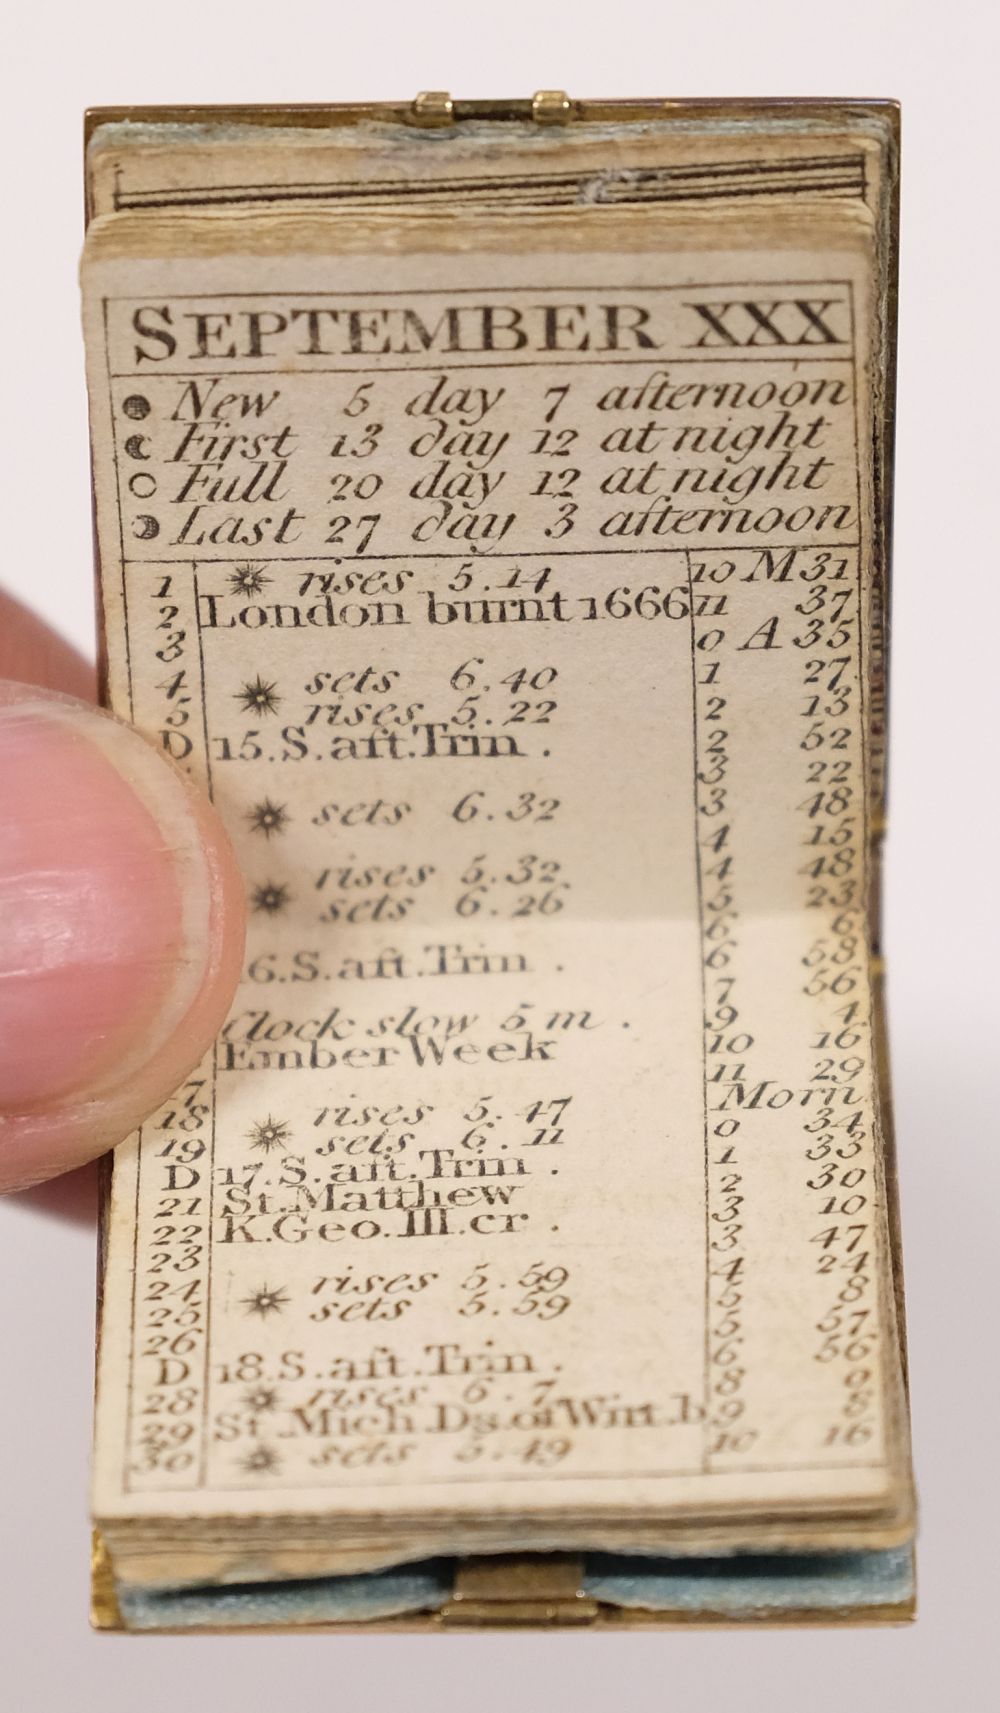 SEPTEMBER XXX
New 5 day 7 afternoon
First 13 day 12 at night
Full 20 day 12 at night
Last 27 day 3 afternoon
1 rises 5.14 10 M 31
2 London burnt 1666 11 37
3 0 A 35
4 sets 6.40 1 27
5 rises 5.22 2 13
D 15.S.aft.Trin. 2 52
3 22
sets 6.32 3 48
4 15
rises 5.32 4 48
sets 6.26 5 23
6 6
6.S.aft.Trin. 6 58
7 56
Clock slow 5 m. 9 4
Ember Week 10 16
7 11 29
18 rises 5.47 Morn
19 sets 6.11 0 34
D 17.S.aft.Trin. 1 33
21 St.Matthew 2 30
22 K.Geo.III.cr. 3 10
23 3 47
24 rises 5.59 4 24
25 sets 5.59 5 8
26 5 57
D 18.S.aft.Trin. 6 56
28 rises 6.7 8 0
29 St.Mich.Ds.of Wirt.b 9 8
30 sets 5.49 10 16